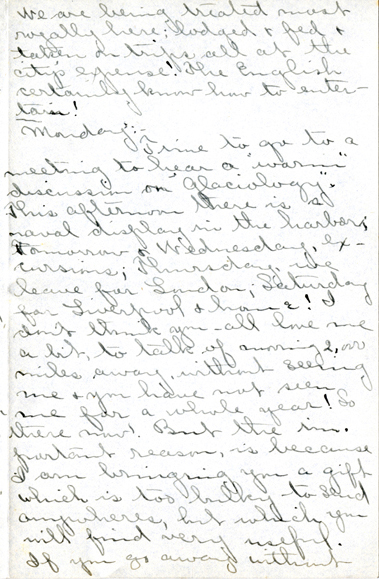 We are being treated most
royally here; lodged & fed &
taken on trips all at the
city's expense! The English
certainly know how to enter-
tain!
Monday:- Time to go to a
meeting to hear a "warm"
discussion on "Glaciology".
This afternoon there is a
naval display in the harbor;
Tomorrow & Wednesday, ex-
cursions; Thursday, we
leave for London; Saturday
for Liverpool & home! I
don't think you-all love me
a bit, to talk of moving 2,000
miles away, without seeing
me & you have not seen
me for a whole year! So
there now! But the im-
portant reason, is because
I am bringing you a gift
which is too bulky to send
anywheres, but which you
will find very useful.
If you go away without